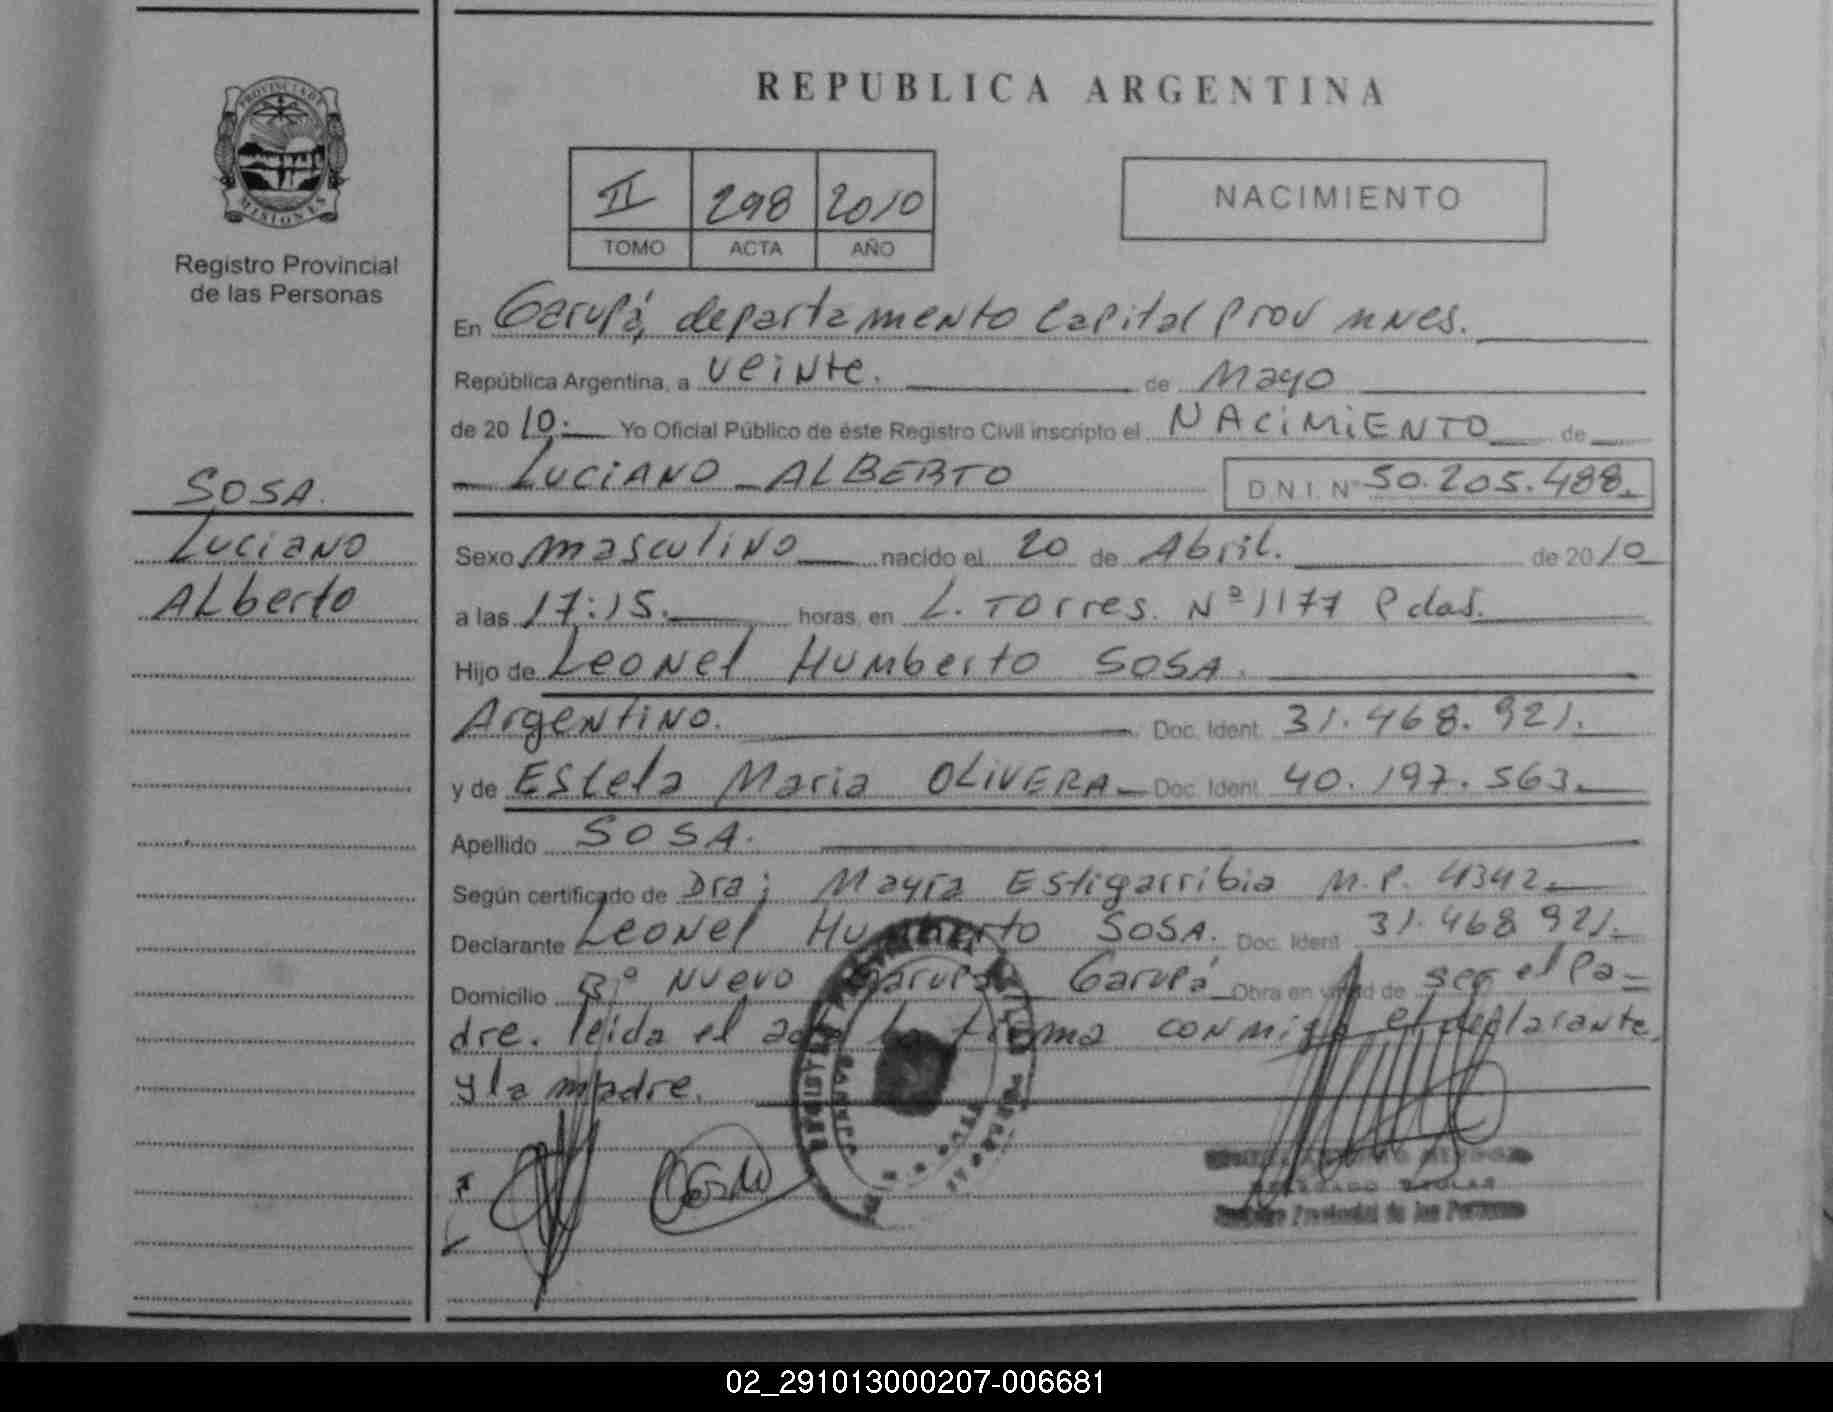 REPUBLICA ARGENTINA
PROVINCIA DE
MISIONES
Registro Provincial
de las Personas
II 298 2010
TOMO ACTA AÑO
NACIMIENTO
En Garupá, departamento Capital Prov mnes.
República Argentina, a veinte. de Mayo
de 2010.- Yo Oficial Público de éste Registro Civil inscripto el NACIMIENTO de
LUCIANO ALBERTO D.N.I. Nº 50.205.488.
SOSA.
Luciano
ALberto
Sexo masculino nacido el 20 de Abril. de 2010
a las 17:15. horas, en L. Torres. Nº 1177 Pdas.
Hijo de Leonel Humberto SOSA.
Argentino. Doc. Ident. 31.468.921.
y de Estela Maria OLIVERA Doc. Ident. 40.197.563.
Apellido SOSA.
Según certificado de Dra; Mayra Estigarribia M.P. 4342
Declarante Leonel Humberto SOSA. Doc. Ident. 31.468 921.
Domicilio Bº Nuevo Garupá Garupá Obra en virtud de ser el Pa-
dre. leida el acta la firma conmigo el declarante
y la madre.
Registro Provincial de las Personas
02_291013000207-006681